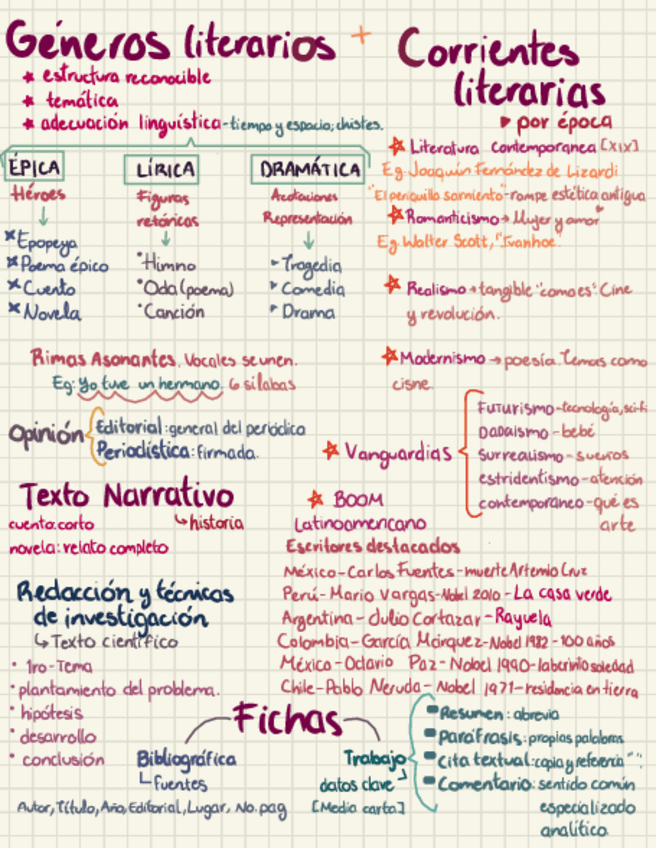 Géneros literarios + Corrientes literarias
* estructura reconocible
* temática
* adecuación linguística - tiempo y espacio; chistes.
ÉPICA
Héroes
Epopeya
Poema épico
Cuento
Novela
LÍRICA
Figuras
retóricas
Himno
Oda (poema)
Canción
DRAMÁTICA
Acotaciones
Representación
Tragedia
Comedia
Drama
Rimas Asonantes. Vocales se unen.
Eg: Yo tuve un hermano. 6 silabas
Opinión
Editorial: general del periódico
Periodística: firmada.
Texto Narrativo
↳ historia
cuento: corto
novela: relato completo
Redacción y técnicas
de investigación
↳ Texto científico
• 1ro - Tema
• plantamiento del problema.
• hipótesis
• desarrollo
• conclusión
▸ por época
Literatura contemporanea [XIX]
Eg. Joaquín Fernández de Lizardi
"El periquillo sarmiento" - rompe estética antigua
Romanticismo → Mujer y amor
Eg. Walter Scott, "Ivanhoe.
Realismo → tangible "como es". Cine
y revolución.
Modernismo → poesía. Temas como
cisne.
Vanguardias
Futurismo - tecnología, sci-fi
Dadaísmo - bebé
Surrealismo - sueños
estridentismo - atención
contemporáneo - qué es
arte
BOOM
Latinoamericano
Escritores destacados
México - Carlos Fuentes - muerte Artemio Cruz
Perú - Mario Vargas - Nobel 2010 - La casa verde
Argentina - Julio Cortazar - Rayuela
Colombia - García Márquez - Nobel 1982 - 100 años
México - Octavio Paz - Nobel 1990 - laberinto soledad
Chile - Pablo Neruda - Nobel 1971 - residencia en tierra
Fichas
Bibliográfica
fuentes
Autor, Título, Año, Editorial, Lugar, No. pag
Trabajo
datos clave
[Media carta]
Resumen: abrevia
Paráfrasis: propias palabras
Cita textual: copia y referencia " "
Comentario: sentido común
especializado
analítico.